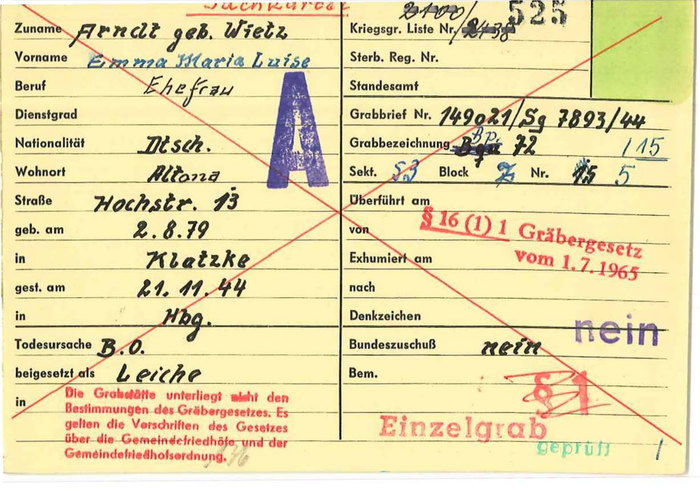 Suchkartei
Zuname Arndt geb. Wietz
Vorname Emma Maria Luise
Beruf Ehefrau
Dienstgrad
Nationalität Dtsch.
Wohnort Altona
Straße Hochstr. 13
geb. am 2.8.79
in Klatzke
gest. am 21.11.44
in Hbg.
Todesursache B.O.
beigesetzt als Leiche
in
Die Grabstätte unterliegt nicht den
Bestimmungen des Gräbergesetzes. Es
gelten die Vorschriften des Gesetzes
über die Gemeindefriedhöfe und der
Gemeindefriedhofsordnung.
A
525
Kriegsgr. Liste Nr. 2438
Sterb. Reg. Nr.
Standesamt
Grabbrief Nr. 149021/Sg 7893/44
Grabbezeichnung Bp 72 / 15
Sekt. 53 Block Z Nr. 15 5
Überführt am
von
§ 16 (1) 1 Gräbergesetz
vom 1.7.1965
Exhumiert am
nach
Denkzeichen
Bundeszuschuß nein
nein
Bem.
§ 1
Einzelgrab
geprüft